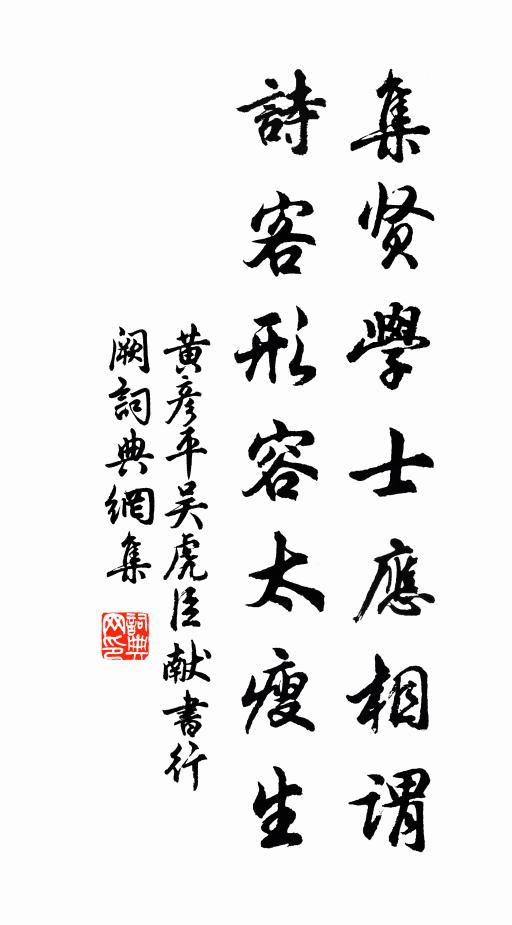 集贤學士應相谓
詩客形容太瘦生
黄彦平吴虎臣献書行
阙詞典網集
詞典网印